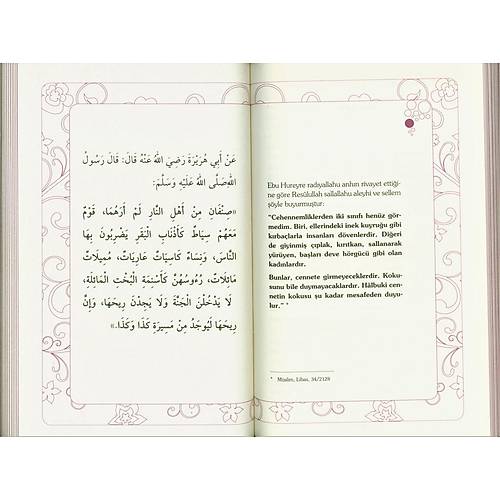 عَنْ أَبِي هُرَيْرَةَ رَضِيَ اللهُ عَنْهُ قَالَ: قَالَ رَسُولُ
اللهِ صَلَّى اللهُ عَلَيْهِ وَسَلَّمَ:
«صِنْفَانِ مِنْ أَهْلِ النَّارِ لَمْ أَرَهُمَا، قَوْمٌ
مَعَهُمْ سِيَاطٌ كَأَذْنَابِ الْبَقَرِ يَضْرِبُونَ بِهَا
النَّاسَ، وَنِسَاءٌ كَاسِيَاتٌ عَارِيَاتٌ، مُمِيلَاتٌ
مَائِلَاتٌ، رُءُوسُهُنَّ كَأَسْنِمَةِ الْبُخْتِ الْمَائِلَةِ،
لَا يَدْخُلْنَ الْجَنَّةَ وَلَا يَجِدْنَ رِيحَهَا، وَإِنَّ
رِيحَهَا لَيُوجَدُ مِنْ مَسِيرَةِ كَذَا وَكَذَا.»
Ebu Hureyre radıyallahu anhın rivayet ettiği-
ne göre Resûlullah sallallahu aleyhi ve sellem
şöyle buyurmuştur:
"Cehennemliklerden iki sınıfı henüz gör-
medim. Biri, ellerindeki inek kuyruğu gibi
kırbaçlarla insanları dövenlerdir. Diğeri
de giyinmiş çıplak, kırıtkan, sallanarak
yürüyen, başları deve hörgücü gibi olan
kadınlardır.
Bunlar, cennete girmeyeceklerdir. Koku-
sunu bile duymayacaklardır. Hâlbuki cen-
netin kokusu şu kadar mesafeden duyu-
lur." *
* Müslim, Libas, 34/2128